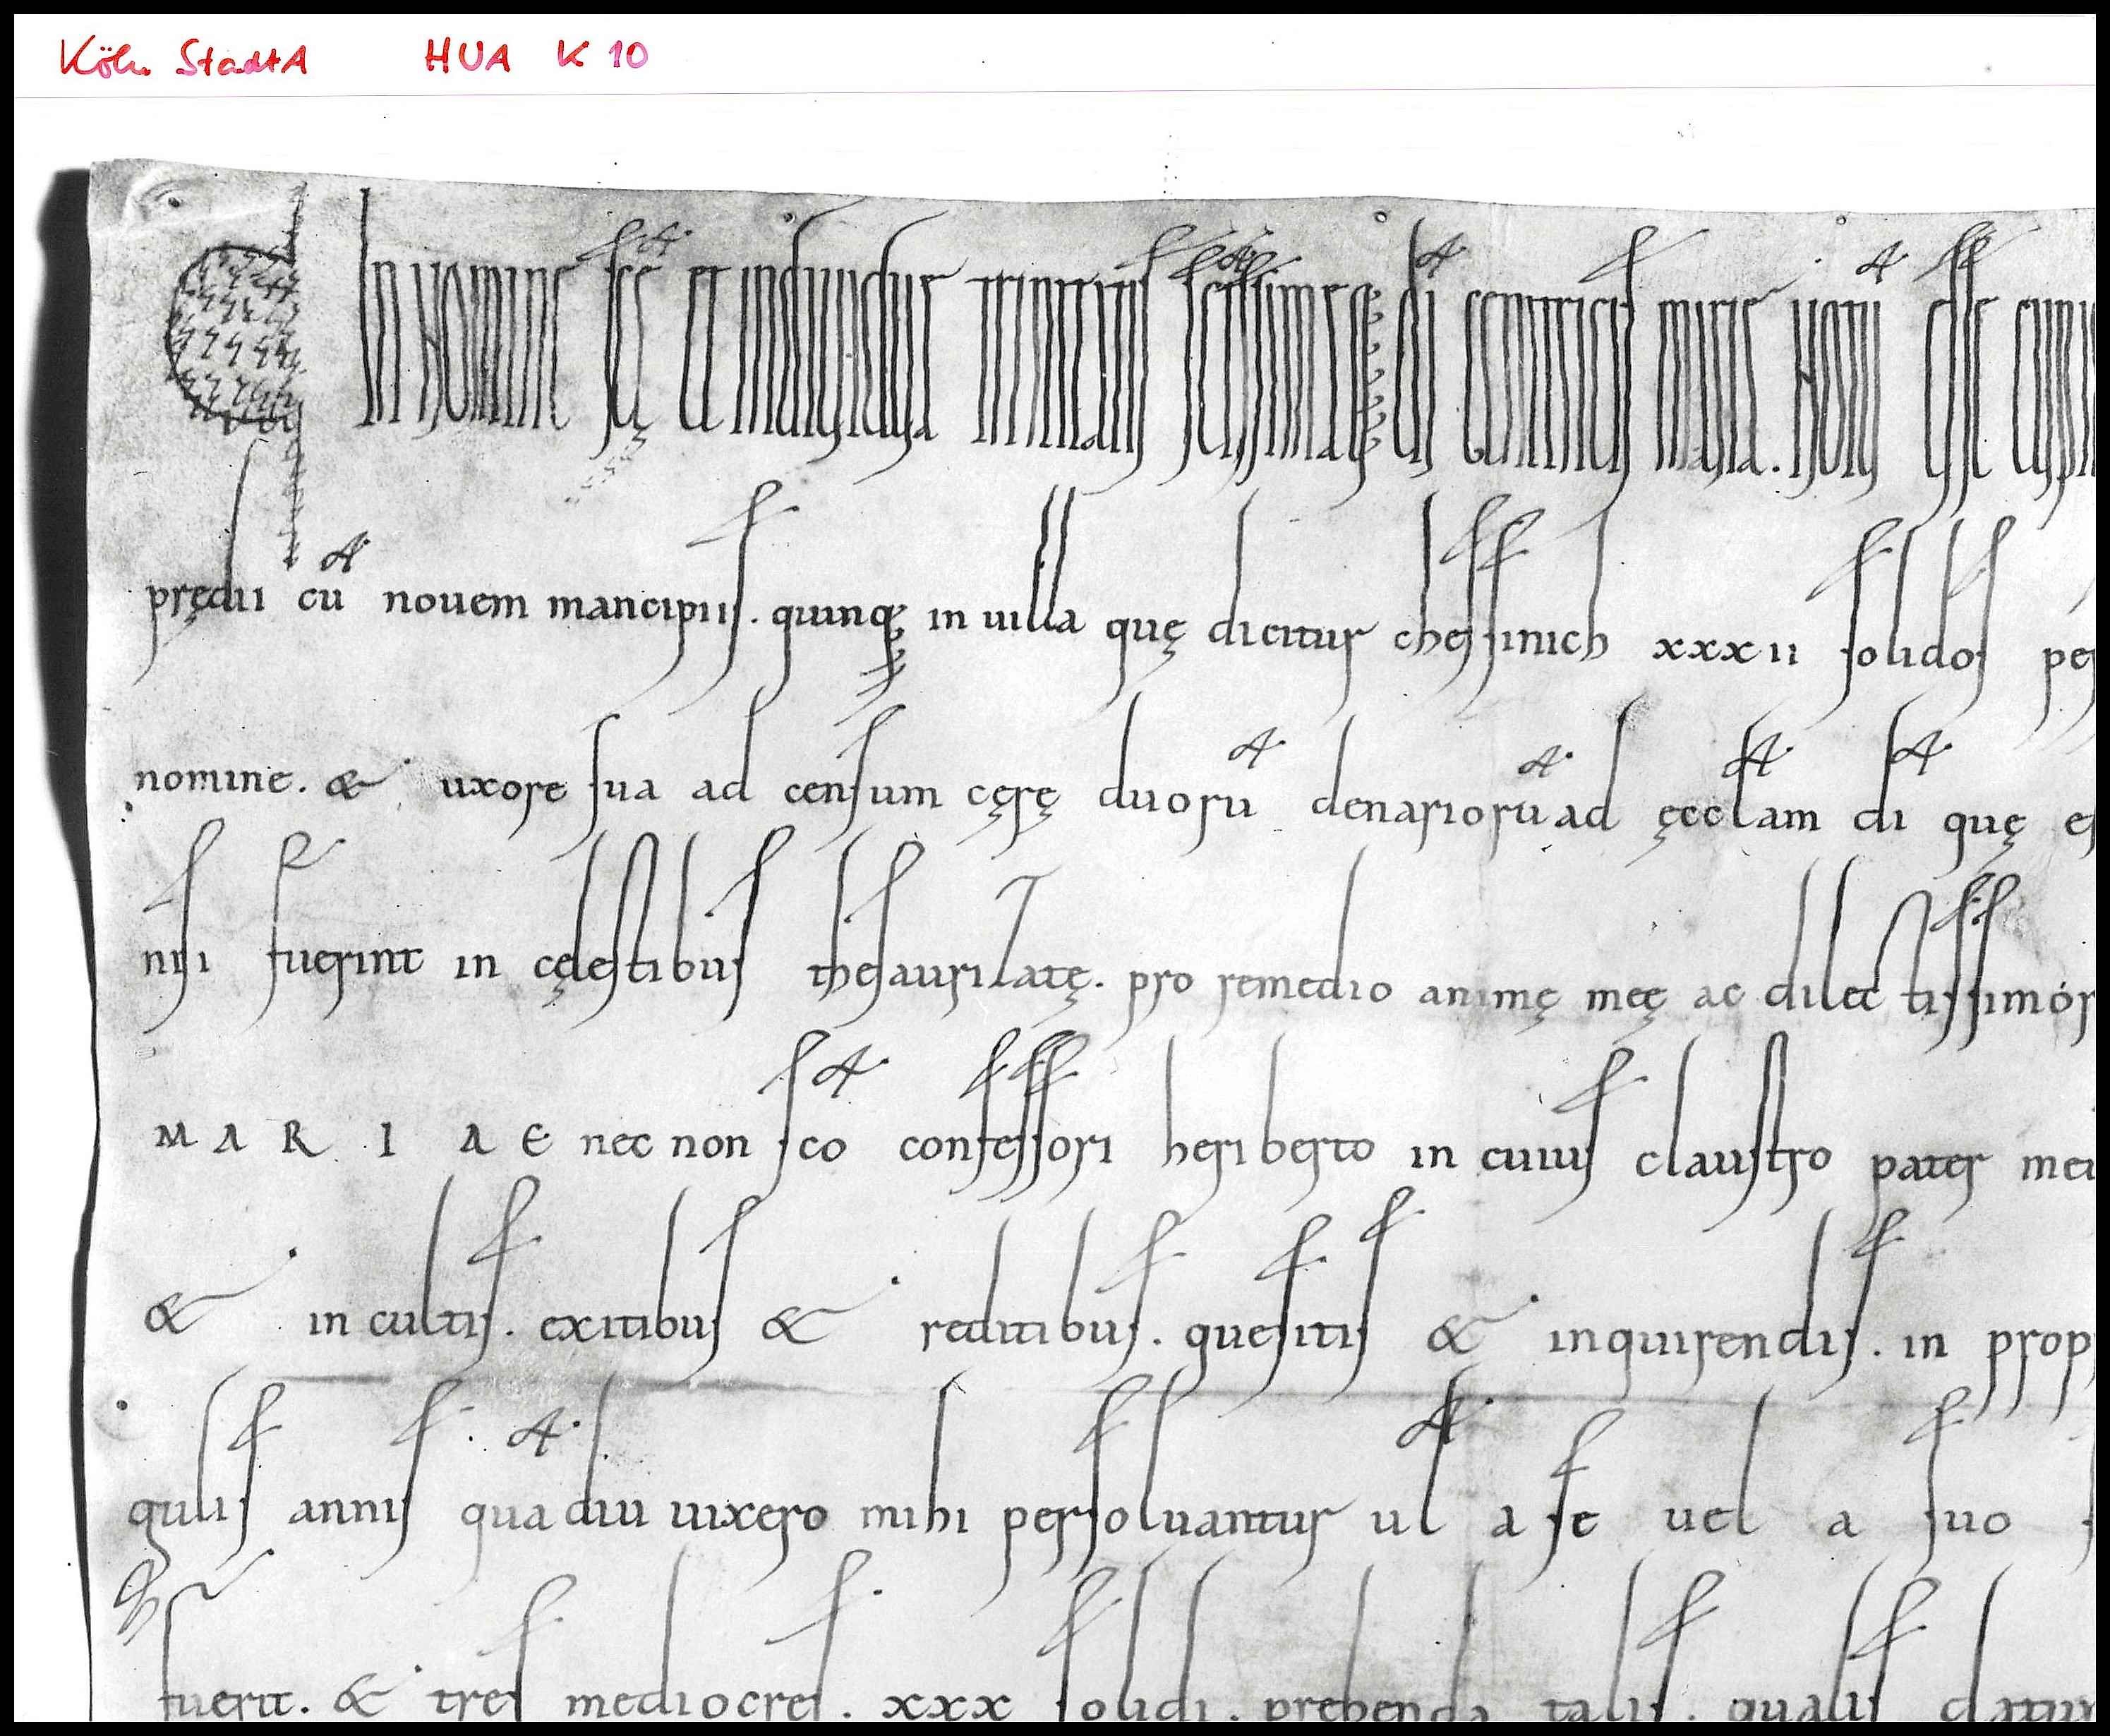 Köln StadtA HUA K 10
In nomine scę et indiuiduę trinitatis scissimęq; di genitricis marię. Notū esse cupi
prędii cū nouem mancipiis. quinq; in uilla quę dicitur chessinich xxxii solidos per
nomine. & uxore sua ad censum cęrę duorū denariorū ad ęcclam di quę e
nisi fuerint in cęlestibus thesaurizatę. pro remedio animę meę ac dilectissimor
MARIAE nec non sco confessori heriberto in cuius claustro pater meu
& in cultis. exitibus & reditibus. quesitis & inquirendis. in prop
gulis annis quadiu uixero mihi persoluantur ul a se uel a suo
fuerit. & tres mediocres. xxx solidi. prebenda talis. qualis datur